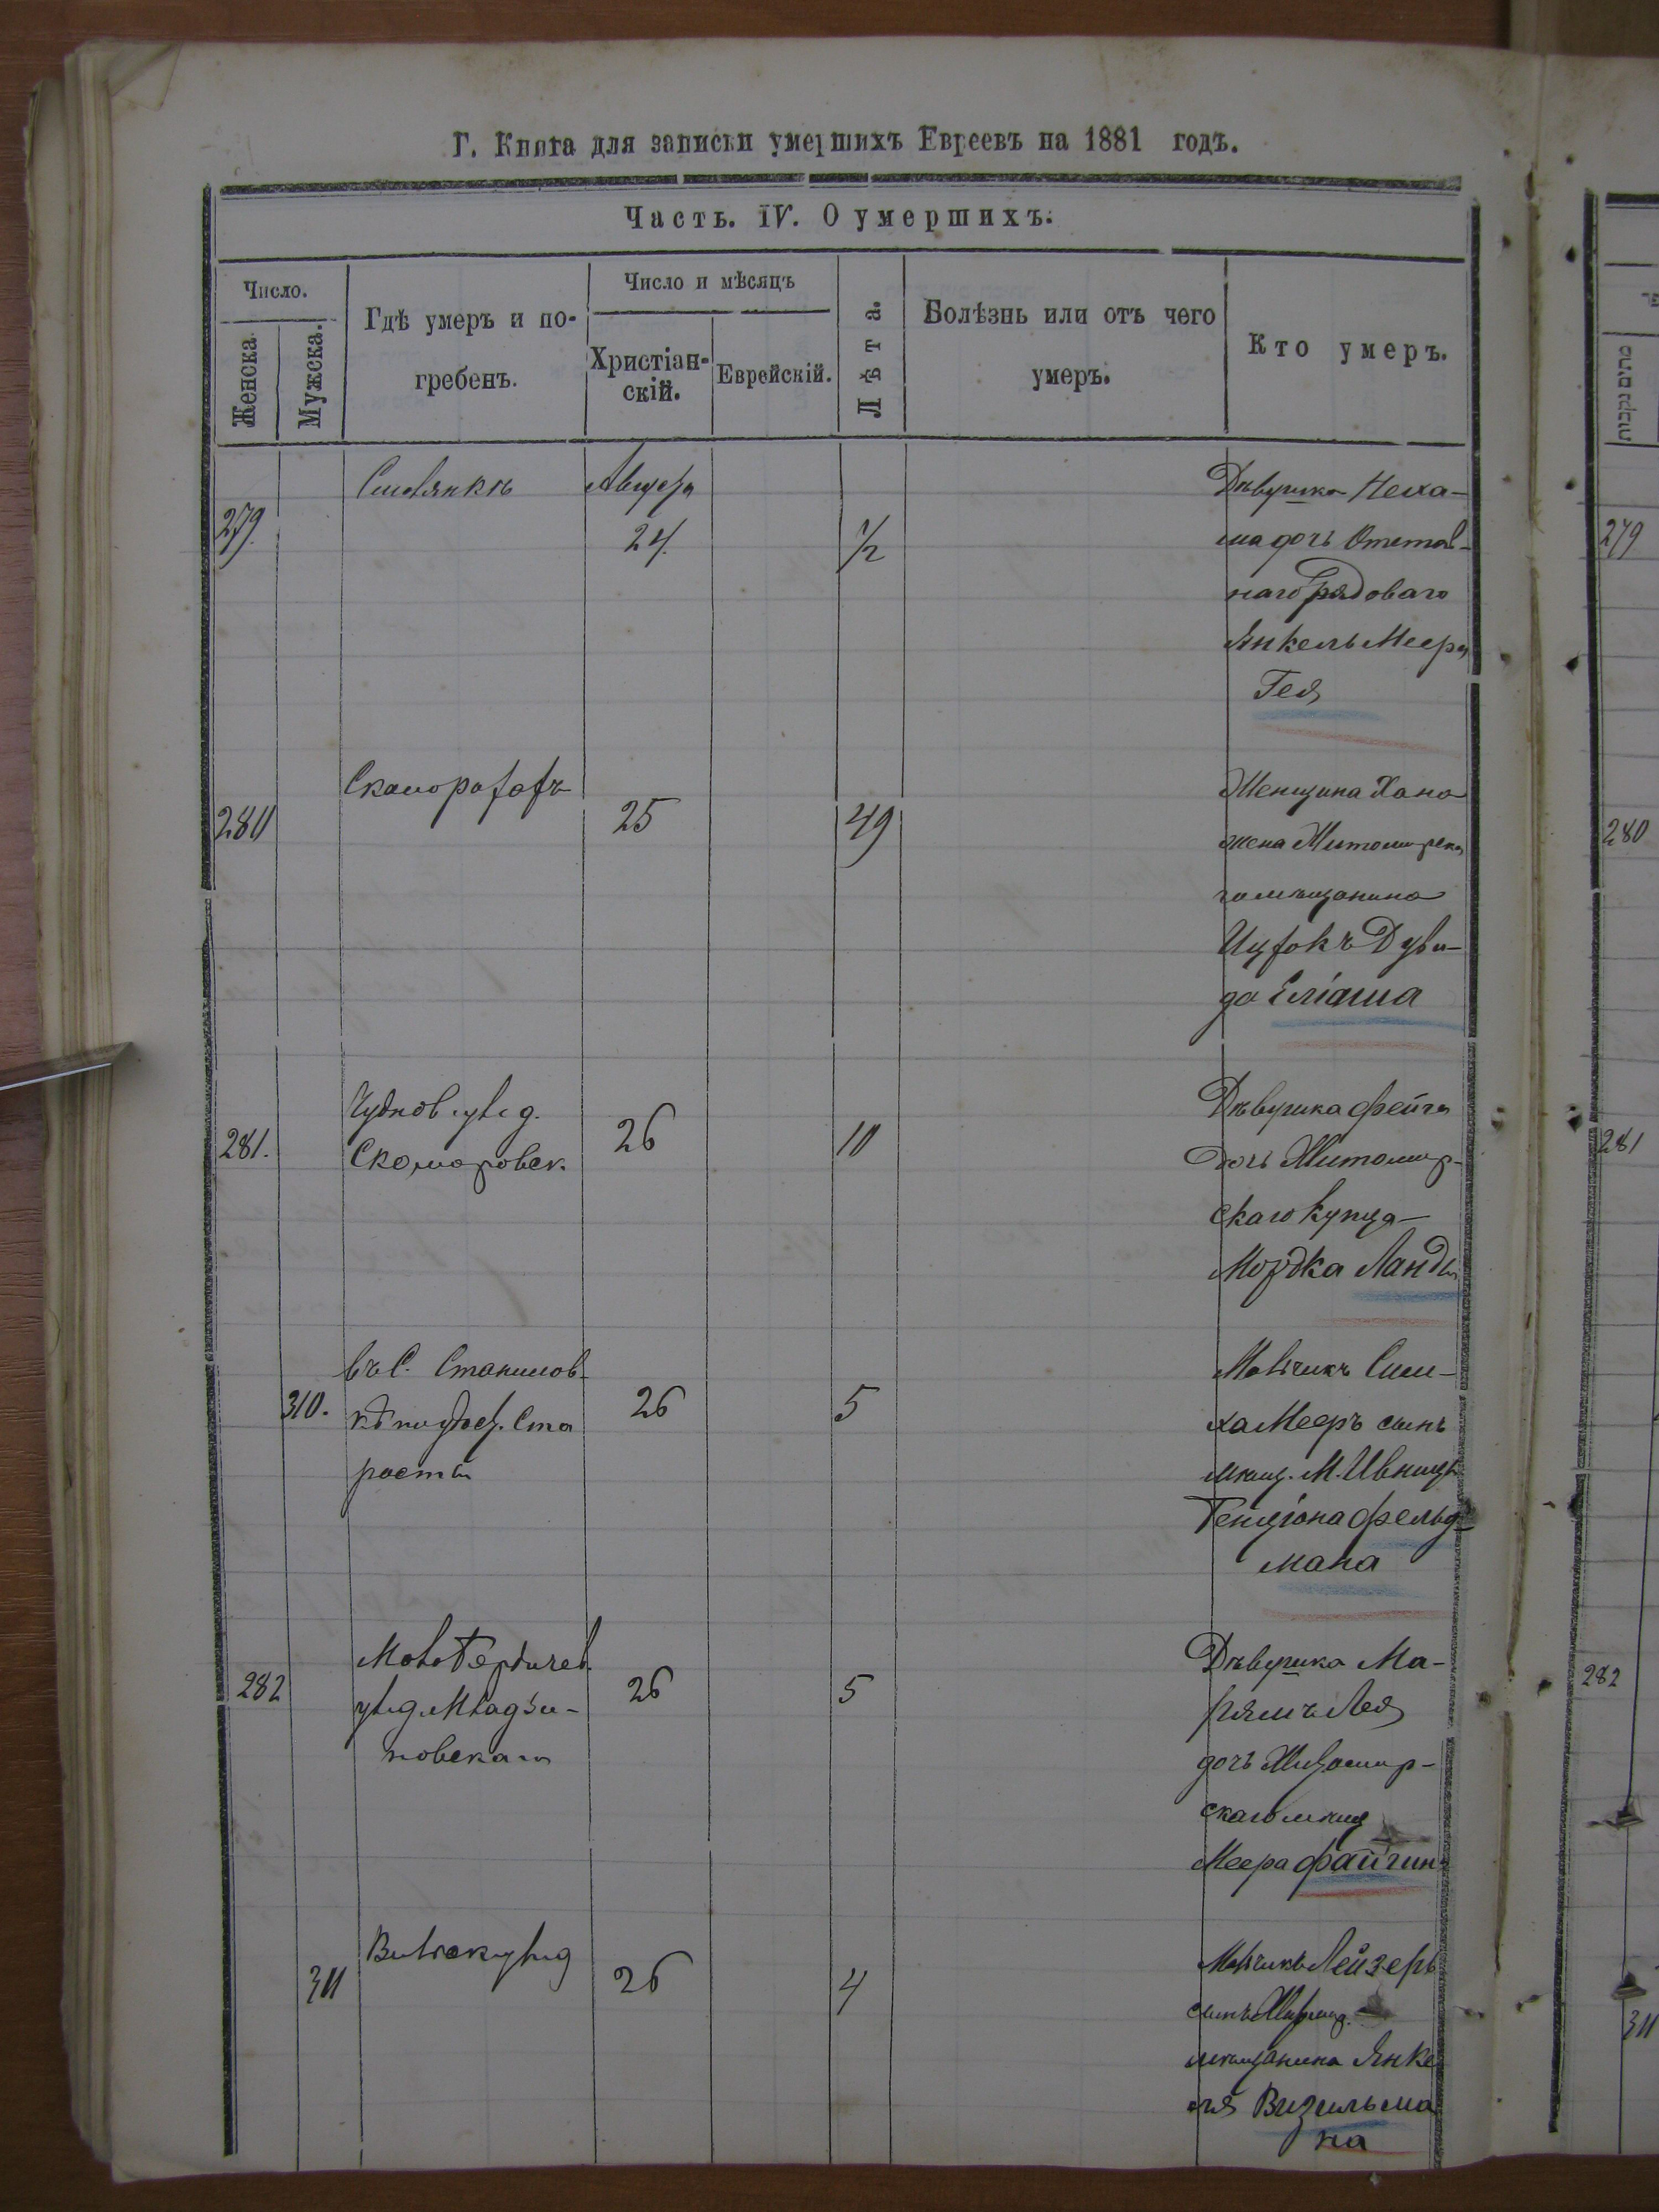 Г. Книга для записки умершихъ Евреевъ на 1881 годъ.
Часть. IV. О умершихъ.
Число.
Женска.
Мужска.
Гдѣ умеръ и по-
гребенъ.
Число и мѣсяцъ
Христіан-
скій.
Еврейскій.
Лѣта.
Болѣзнь или отъ чего
умеръ.
Кто умеръ.
279.
Августа
24.
1/2
Дѣвушка Неха-
ма дочь Отстав-
наго рядоваго
Янкель Меера
Гея
280
25
49
Женщина Хана
жена Житомирска
го мѣщанина
Ицхокъ Дуви-
да Еліаша
281.
Чудновс. уѣзд.
Скоморовск.
26
10
Дѣвушка Фейга
дочь Житомир-
скаго купца
Мордка Ланды
310.
въ С.
рости
26
5
Мальчикъ Сим-
ха Мееръ сынъ
мѣщ. М. Ивницы
Бенціона Фельд-
мана
282
Бердичев.
уѣзд.
26
5
Дѣвушка Ма-
рямъ Лея
дочь Житомир-
скаго мѣщ
Меера Файгина
311
26
4
Мальчикъ Лейзеръ
сынъ
мѣщанина Янке
ля Визельма
на
279
280
281
282
311